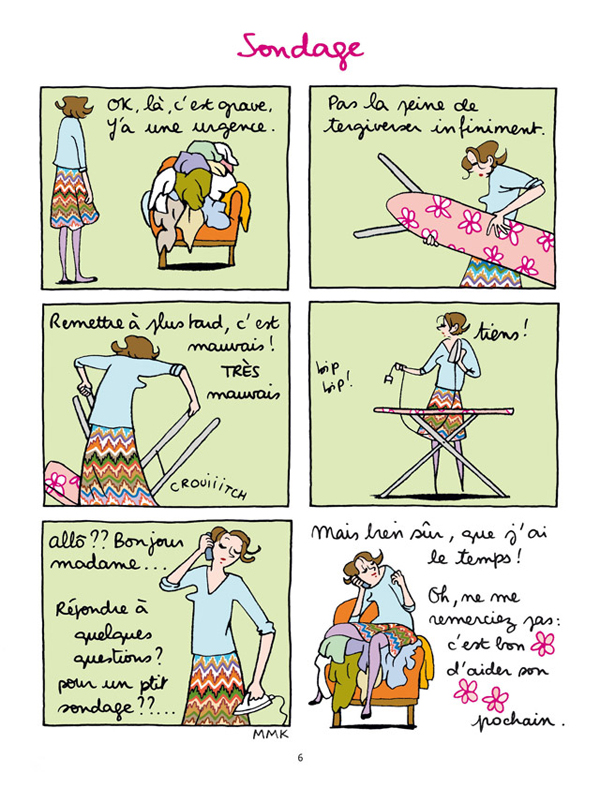 Sondage
OK, là, c'est grave,
Y'a une urgence.
Pas la peine de
tergiverser infiniment.
Remettre à plus tard, c'est
mauvais!
TRÈS
mauvais
CROUIIIITCH
tiens!
bip
bip!
Allô?? Bonjour
madame....
Répondre à
quelques
questions?
pour un ptit
sondage??....
MMK
Mais bien sûr, que j'ai
le temps!
Oh, ne me
remerciez pas:
c'est bon
d'aider son
pochain.
6